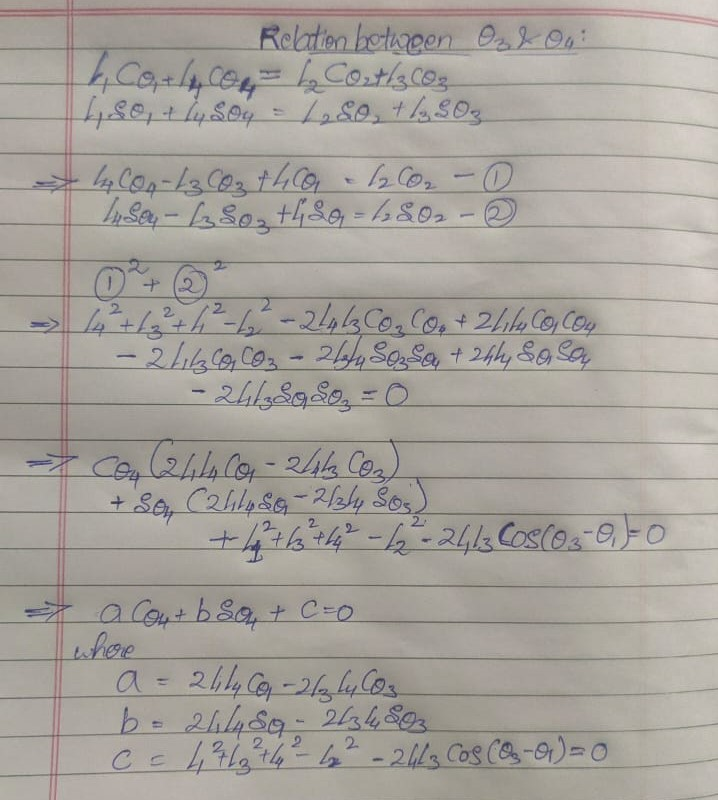 Relation between θ₃ & θ₄:
L₁Cθ₁+L₄Cθ₄ = L₂Cθ₂+L₃Cθ₃
L₁Sθ₁+L₄Sθ₄ = L₂Sθ₂+L₃Sθ₃
⇒ L₄Cθ₄-L₃Cθ₃+L₁Cθ₁ = L₂Cθ₂ - ①
L₄Sθ₄-L₃Sθ₃+L₁Sθ₁=L₂Sθ₂ - ②
①² + ②²
⇒ L₄²+L₃²+L₁²-L₂² - 2L₄L₃Cθ₃Cθ₄ + 2L₁L₄Cθ₁Cθ₄
- 2L₁L₃Cθ₁Cθ₃ - 2L₃L₄Sθ₃Sθ₄ + 2L₁L₄Sθ₁Sθ₄
- 2L₁L₃Sθ₁Sθ₃ = 0
⇒ Cθ₄(2L₁L₄Cθ₁ - 2L₄L₃Cθ₃)
+ Sθ₄(2L₁L₄Sθ₁-2L₃L₄Sθ₃)
+ L₁²+L₃²+L₄²-L₂²-2L₁L₃Cos(θ₃-θ₁)=0
⇒ aCθ₄+bSθ₄+c=0
where
a = 2L₁L₄Cθ₁-2L₃L₄Cθ₃
b = 2L₁L₄Sθ₁-2L₃L₄Sθ₃
c = L₁²+L₃²+L₄²-L₂² -2L₁L₃Cos(θ₃-θ₁)=0